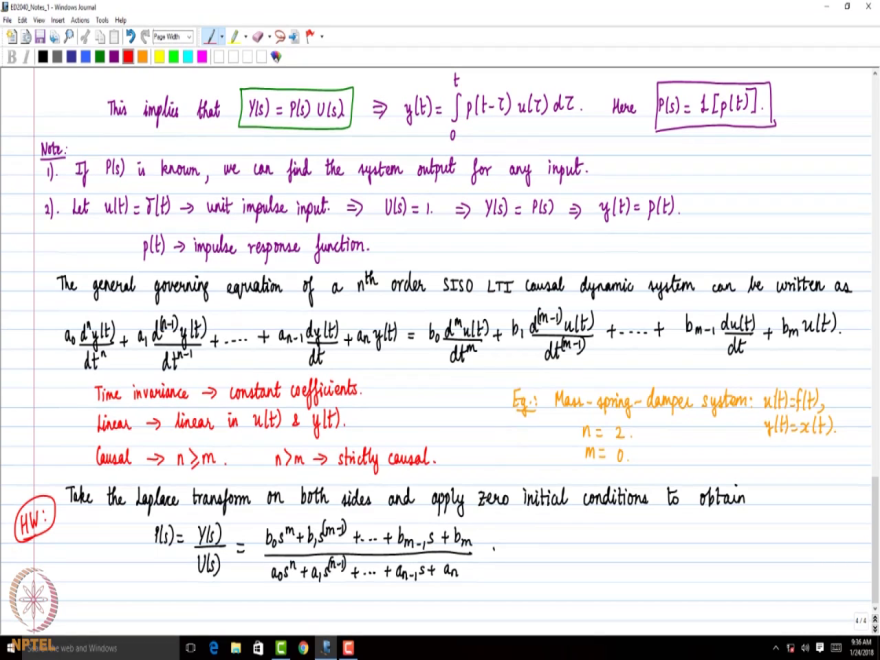 ED2040_Notes_1 - Windows Journal
File Edit View Insert Actions Tools Help
Page Width
B I
This implies that Y(s) = P(s) U(s) ⇒ y(t) = ∫₀ᵗ p(t-τ) u(τ) dτ. Here P(s) = L[p(t)].
Note:
1). If P(s) is known, we can find the system output for any input.
2). Let u(t) = δ(t) → unit impulse input. ⇒ U(s) = 1. ⇒ Y(s) = P(s) ⇒ y(t) = p(t).
p(t) → impulse response function.
The general governing equation of a nth order SISO LTI causal dynamic system can be written as
a₀ dⁿy(t)/dtⁿ + a₁ d⁽ⁿ⁻¹⁾y(t)/dtⁿ⁻¹ + .... + aₙ₋₁ dy(t)/dt + aₙ y(t) = b₀ dᵐu(t)/dtᵐ + b₁ d⁽ᵐ⁻¹⁾u(t)/dt⁽ᵐ⁻¹⁾ + .... + bₘ₋₁ du(t)/dt + bₘ u(t).
Time invariance → constant coefficients.
Linear → linear in u(t) & y(t).
Causal → n ≥ m. n > m → strictly causal.
Eg.: Mass-spring-damper system: u(t) = f(t),
y(t) = x(t).
n = 2.
m = 0.
HW:
Take the Laplace transform on both sides and apply zero initial conditions to obtain
P(s) = Y(s)/U(s) = (b₀sᵐ + b₁s⁽ᵐ⁻¹⁾ + ... + bₘ₋₁s + bₘ)/(a₀sⁿ + a₁s⁽ⁿ⁻¹⁾ + ... + aₙ₋₁s + aₙ) .
4 / 4
NPTEL
the web and Windows
9:36 AM
1/24/2018